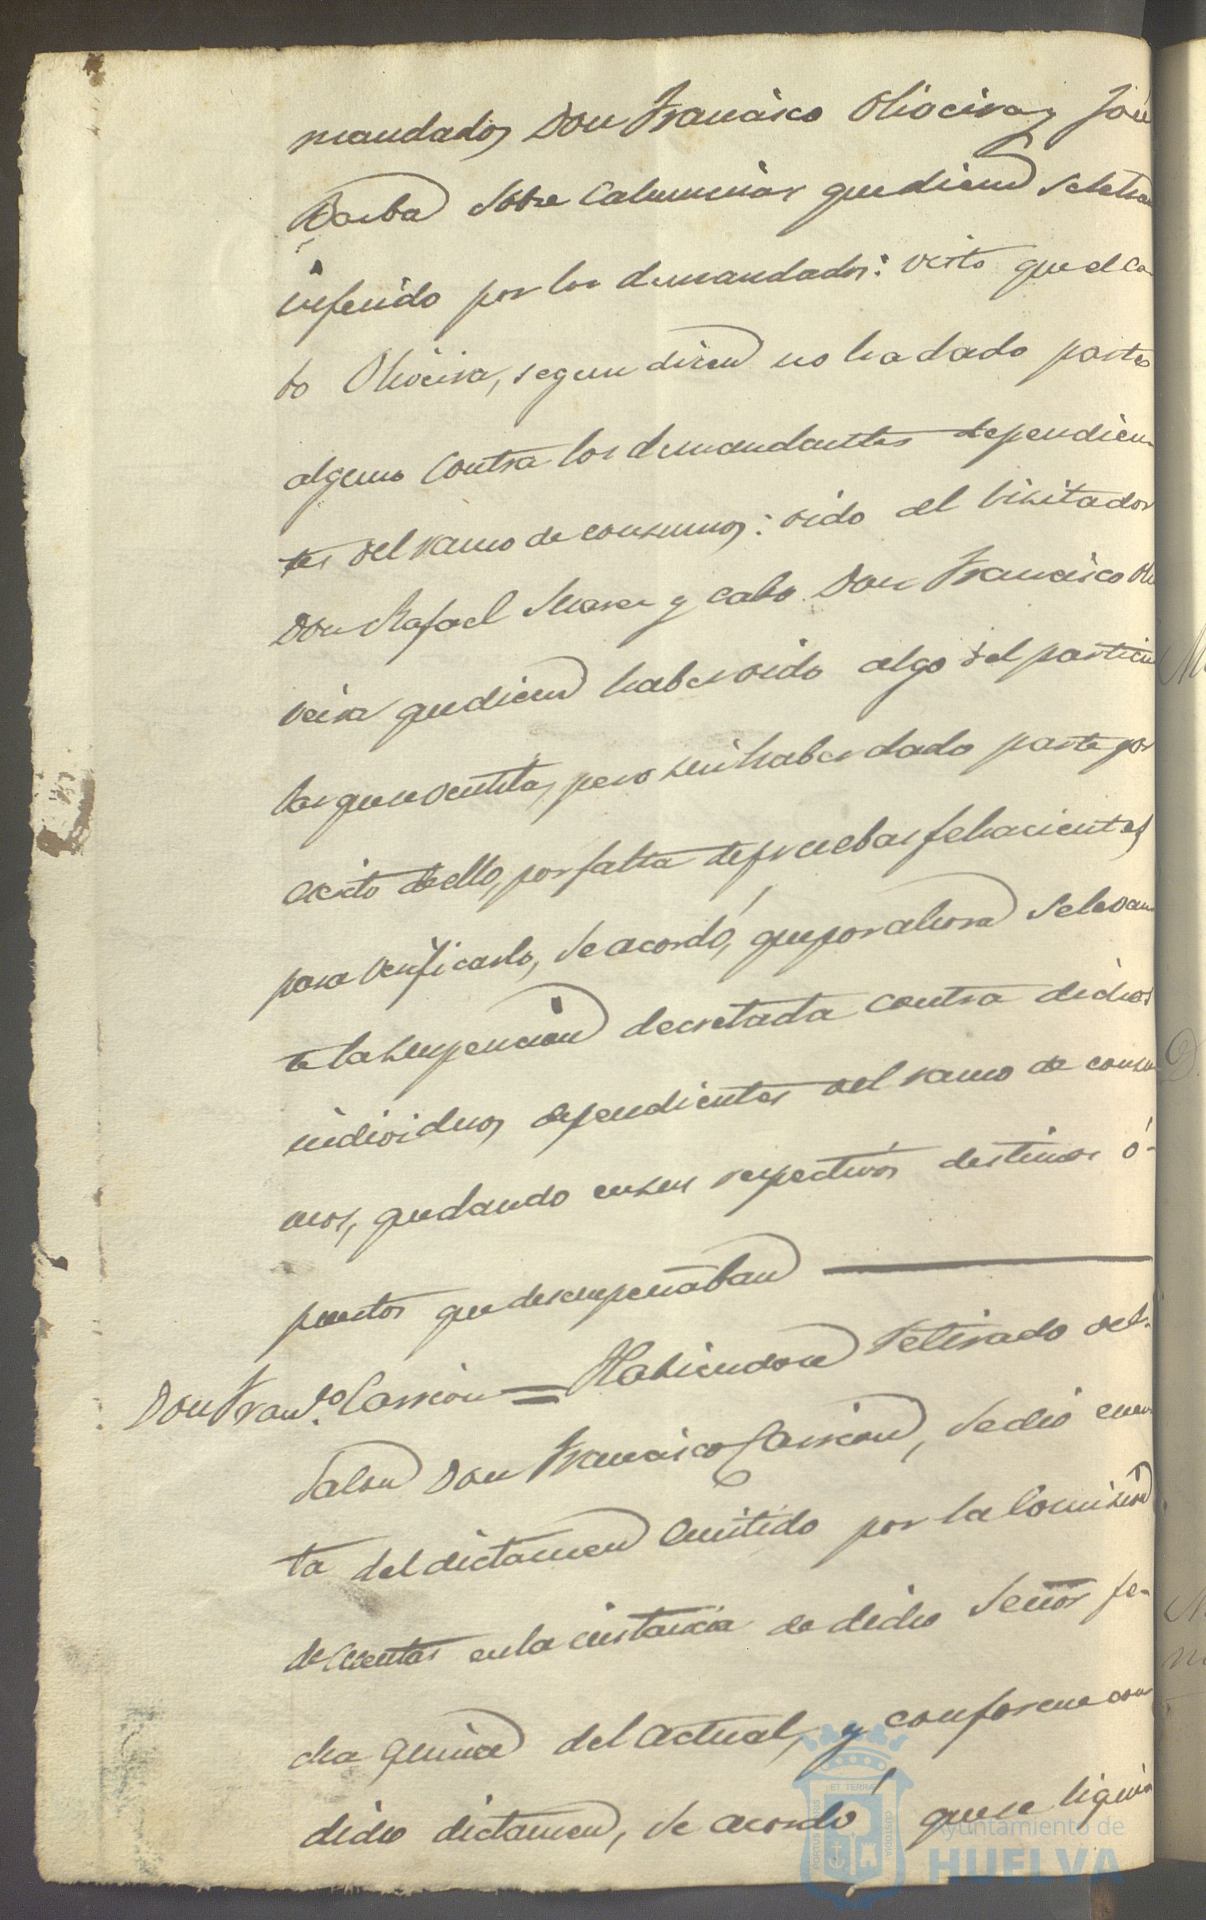 mandados Don Francisco Olioeira y José
Barba sobre calumnias que dicen se le han
inferido por los demandados: visto que el ca-
bo Olioeira, segun dicen no ha dado parte
alguno contra los demandantes dependien-
tes del ramo de consumos: oido al visitador
Don Rafael Suarez y cabo Don Francisco Oli
oeira que dicen haber oido algo del particu
lar que se ventila, pero sin haber dado parte por
escrito de ello, por falta de pruebas fehacientes
para verificarlo, se acordó, que por ahora se levan
te la suspencion decretada contra dichos
individuos dependientes del ramo de consu
mos, quedando en sus respectivos destinos ó-
puestos que desempeñaban
Don Fran.co Carrion = Habiendose retirado del-
salon Don Francisco Carrion, se dió cuen
ta del dictamen emitido por la Comision
de cuentas en la instancia de dicho Señor fe-
cha quince del actual, y conforme con
dicho dictamen, se acordó que se liquid
ET TERRAE
PORTUS MARIS
CUSTODIA
Ayuntamiento de
HUELVA